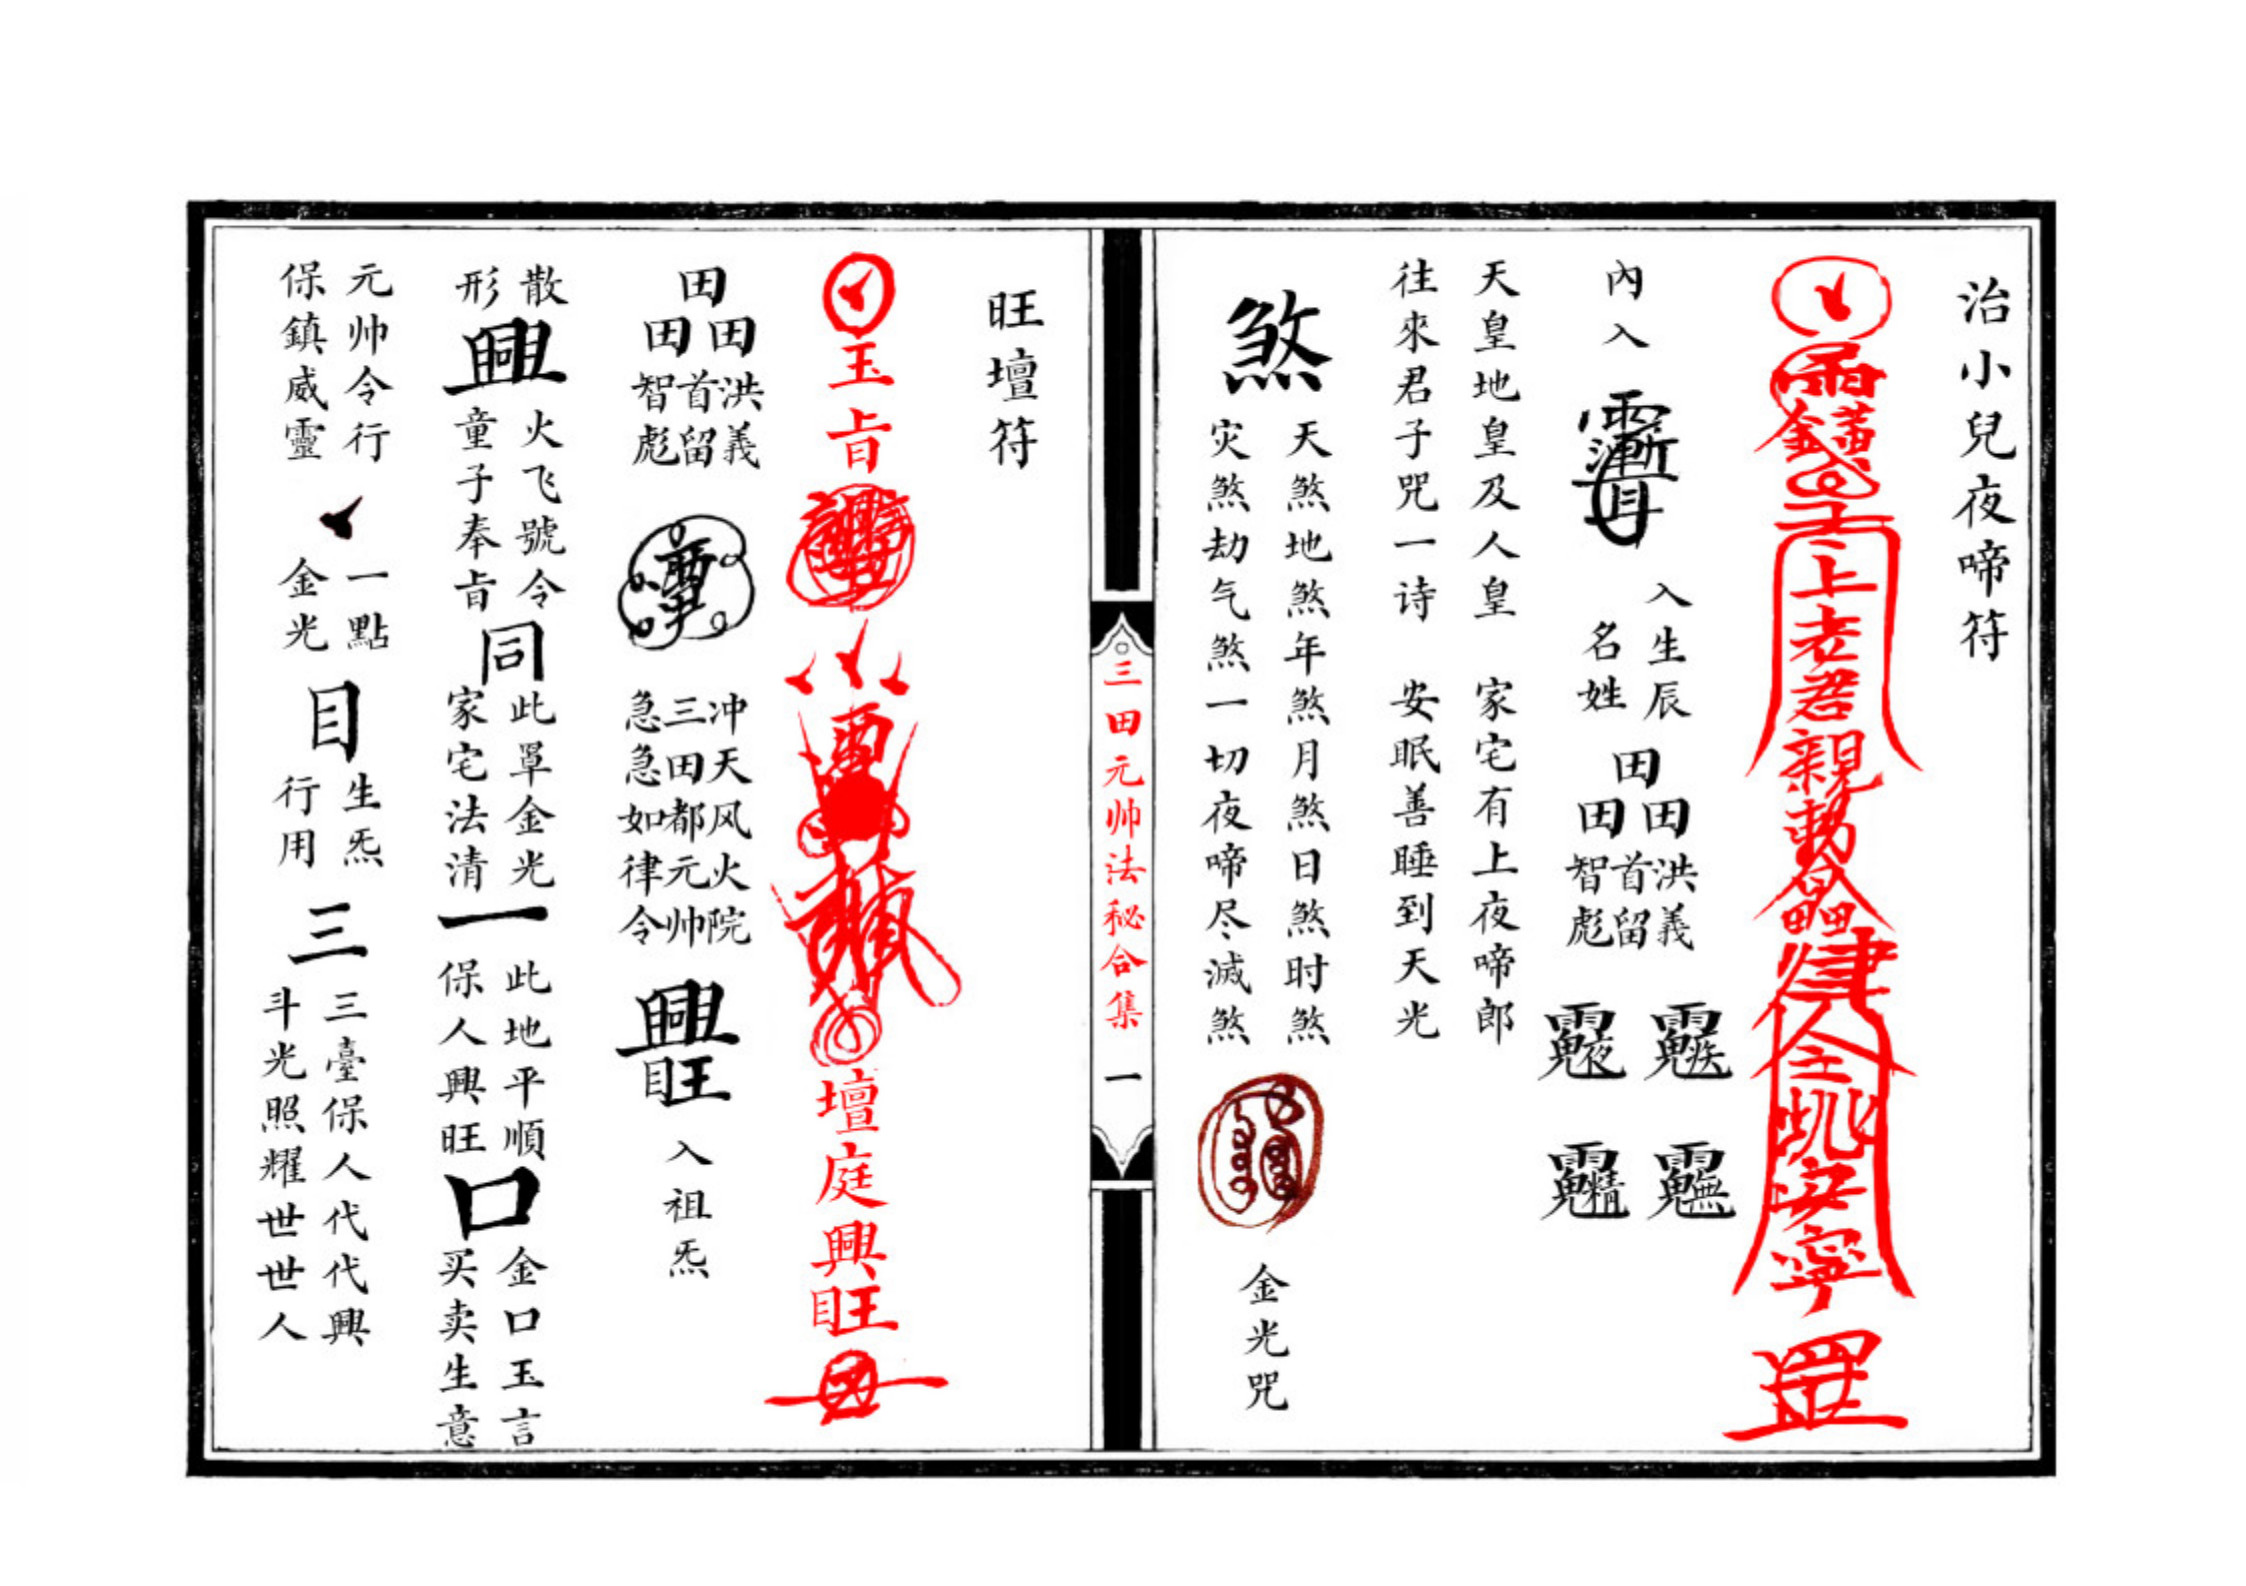 治小兒夜啼符
上老君
親勅
律令
安寧
罡
內入
入生辰
名姓
田
田田
洪義
首留
智彪
天皇地皇及人皇 家宅有上夜啼郎
往來君子咒一诗 安眠善睡到天光
煞
天煞地煞年煞月煞日煞时煞
灾煞劫气煞一切夜啼尽滅煞
金光咒
三田元帅法秘合集 一
旺壇符
玉㫖
壇庭興旺
田
田田
洪義
首留
智彪
冲天风火院
三田都元帅
急急如律令
興旺
入祖炁
散形
興
火飞號令
童子奉㫖
同
此罩金光
家宅法清
一
此地平順
保人興旺
口
金口玉言
买卖生意
元帅令行
保鎮威靈
一點
金光
目
生炁
行用
三
三臺保人代代興
斗光照耀世世人